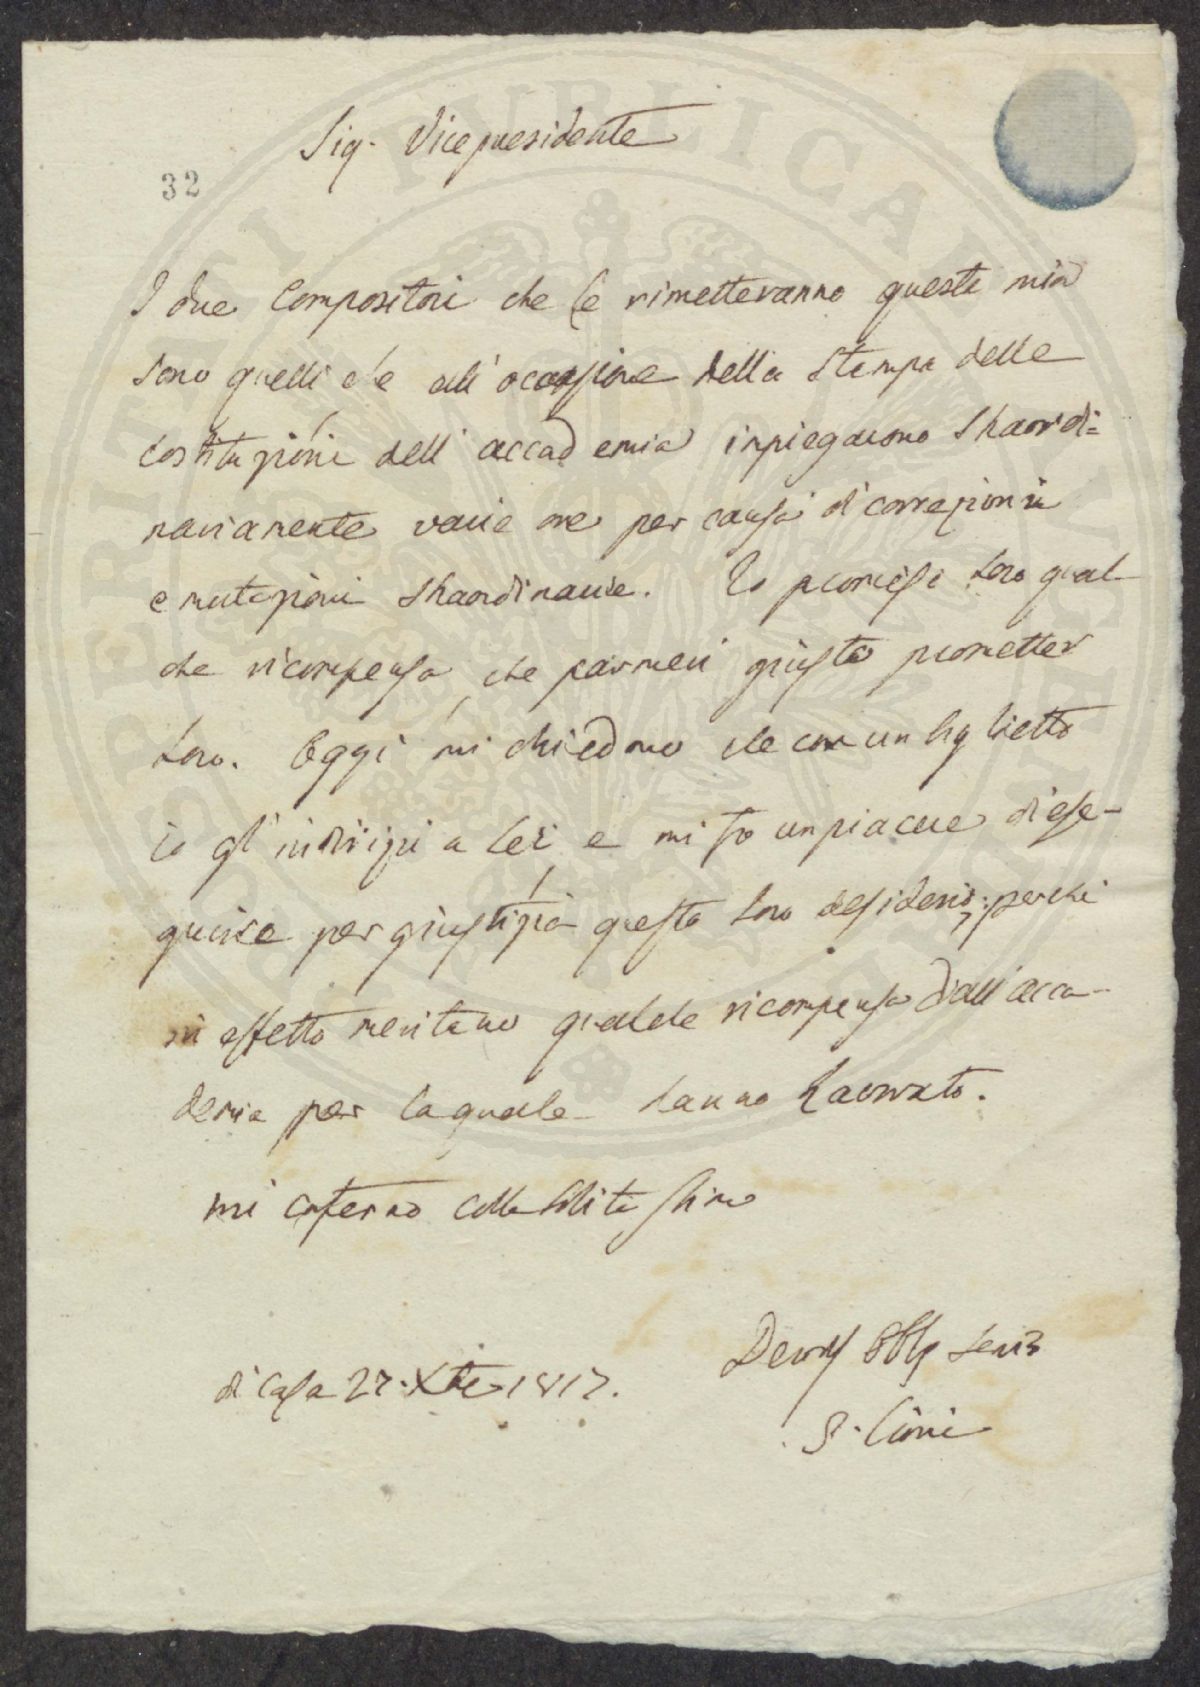 Sig. Vicepresidente
32
I due Compositori che le rimetteranno questa mia
sono quelli che all'occasione della stampa delle
costituzioni dell'accademia inpiegarono straordi=
nariamente varie ore per causa di correzioni
e mutazioni straordinarie. Io promisi loro qual
che ricompensa, che parmeri giusto prometter
loro. Oggi mi chiedono che con un biglietto
io gl'indirizzi a lei e mi fo un piacere d'ese-
guire per giustizia questo loro desiderio; perchè
in effetto meritano qualche ricompensa dall'acca-
demia per la quale hanno travorato.
mi confermo colla solita stima
di casa 27. Xbre 1817.
Devmo Obblmo Serv